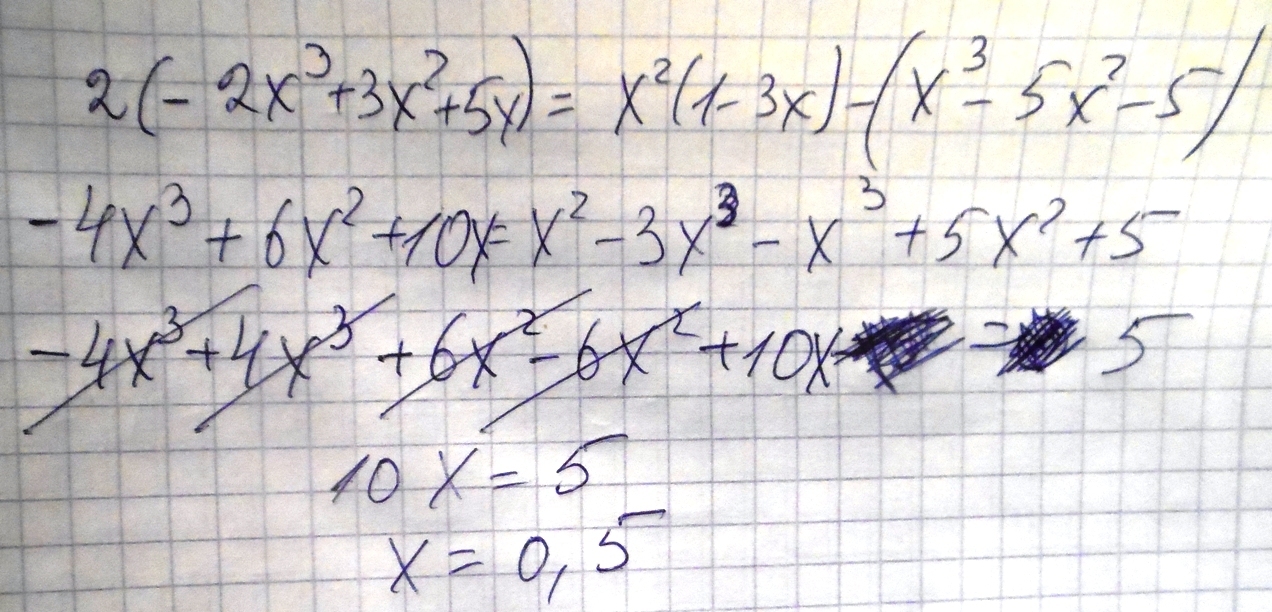 2(-2x³+3x²+5x)= x²(1-3x)-(x³-5x²-5)
-4x³+6x²+10x=x²-3x³-x³+5x²+5
-4x³+4x³+6x²-6x²+10x = 5
10x=5
x=0,5